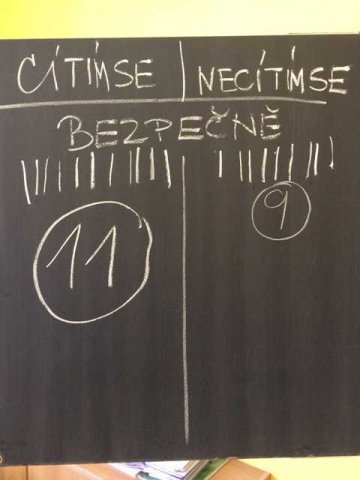 CÍTÍMSE | NECÍTÍMSE
BEZPEČNĚ
11 9